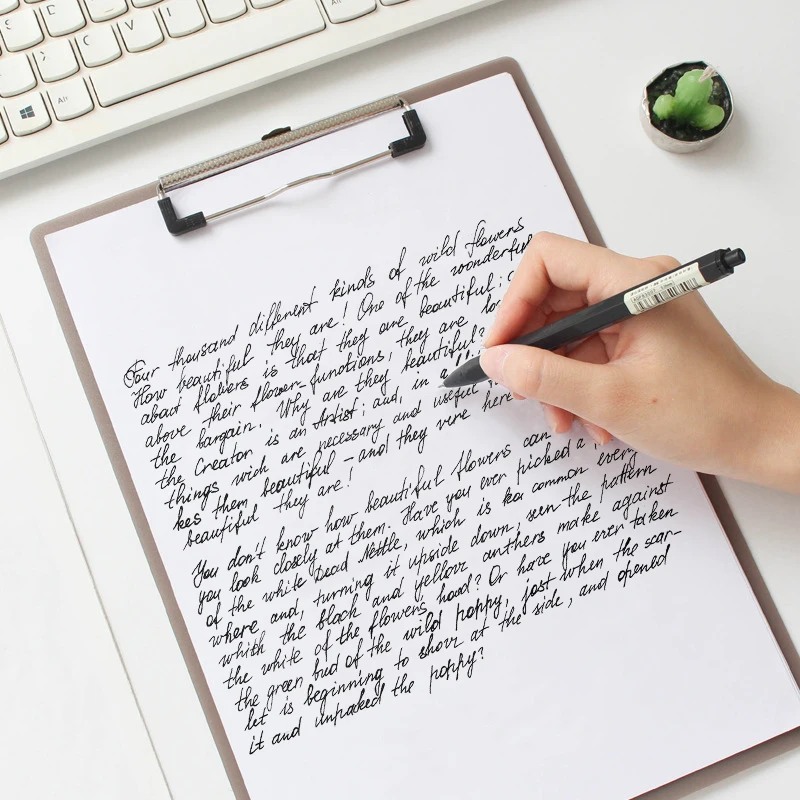 Four thousand different kinds of wild flowers
How beautiful they are! One of the wonderful
about flowers is that they are beautiful;
above their flower-functions, they are
the bargain. Why are they beautiful?
the Creator is an Artist; and, in
things wich are necessary and useful
kes them beautiful - and they were here
beautiful they are!
You don't know how beautiful flowers can
you look closely at them. Have you ever picked a
of the white Dead Nettle, which is common every
where and, turning it upside down, seen the pattern
which the black and yellow anthers make against
the white of the flowers hood? Or have you ever taken
the green bud of the wild poppy, just when the scar-
let is beginning to show at the side, and opened
it and unpacked the poppy?
Alt
Alt
C
V